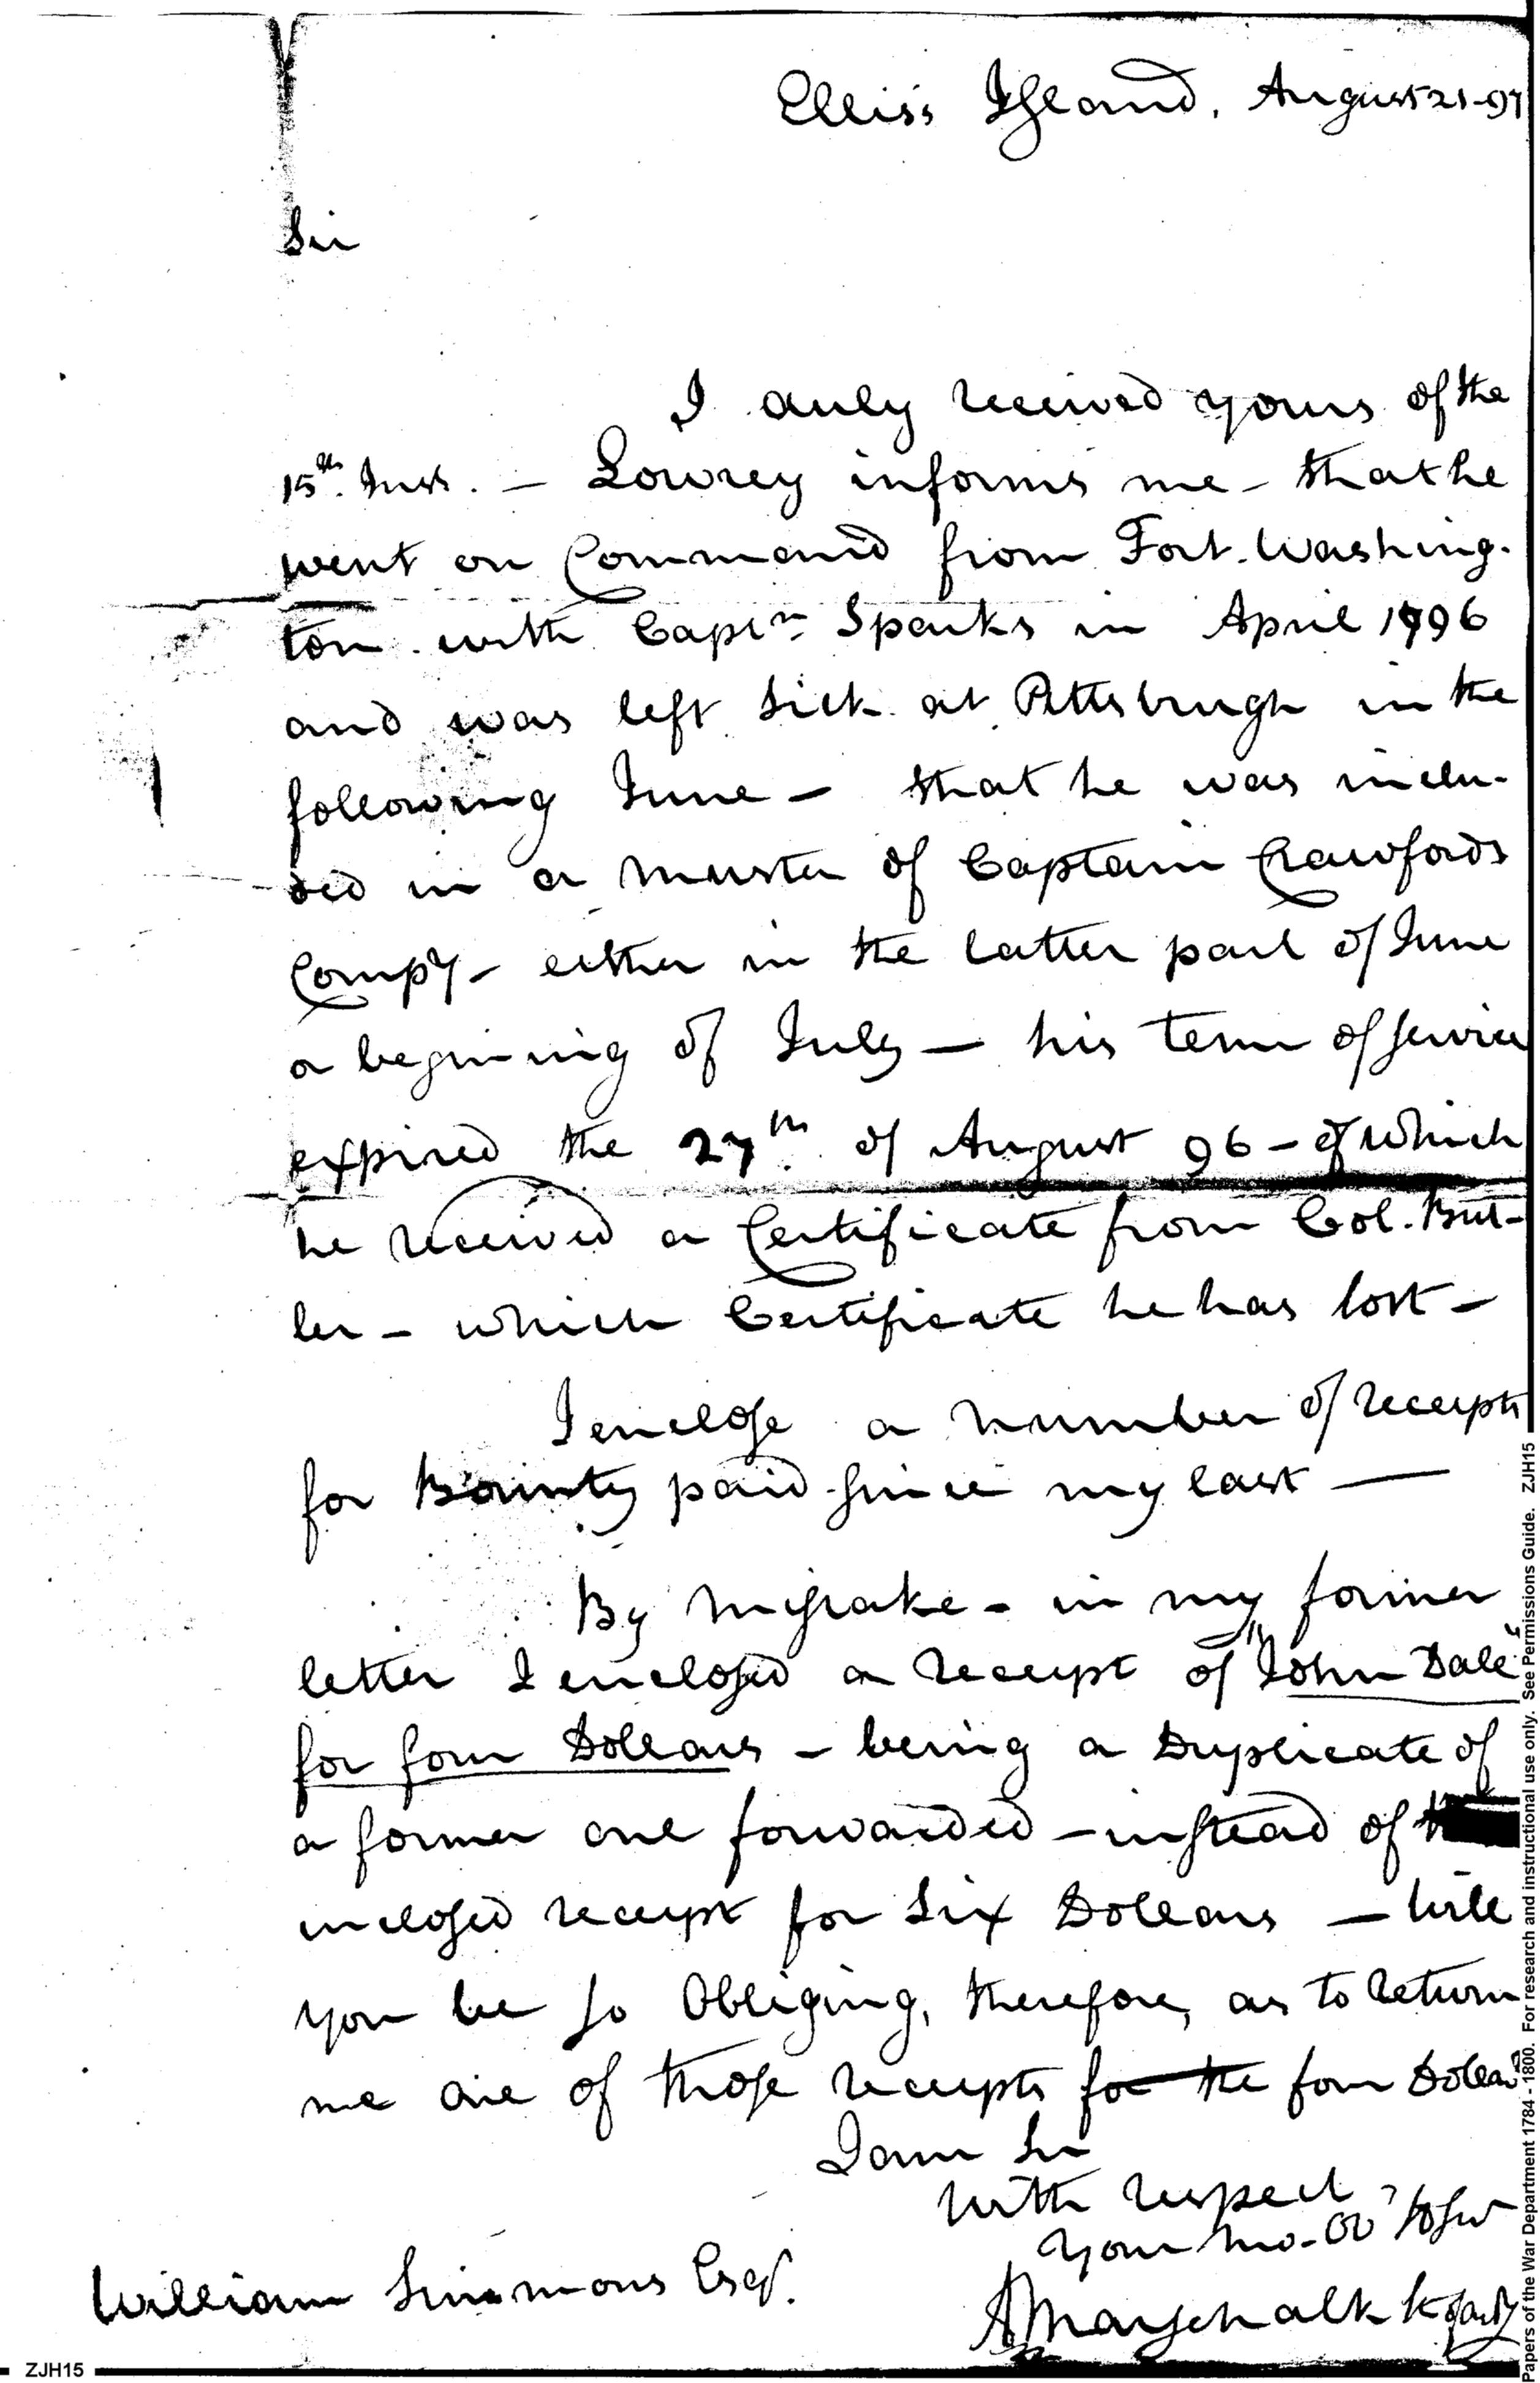 Ellis's Island, August 21-97
Sir
I duly received yours of the
15th. Inst. — Lowrey informs me - that he
went on Command from Fort. Washing-
ton with Captn Sparks in April 1796
and was left Sick at Pittsburgh in the
following June — that he was inclu-
ded in a muster of Captain Crawfords
Compy - either in the latter part of June
or begining of July — his term of service
expired the 27th of August 96 - of which
he received a Certificate from Col. But-
ler - which Certificate he has lost —
I enclose a number of receipts
for Bounty paid since my last —
By mistake - in my former
letter I enclosed a receipt of "John Dale"
for four Dollars - being a Duplicate of
a former one forwarded - instead of
inclosed receipt for Six Dollars — will
you be so Obliging, therefore, as to return
me one of those receipts for the four Dollars
I am Sir
with respect
your mo. Ob
William Simmons Esqr.
A Marschalk
Papers of the War Department 1784 - 1800. For research and instructional use only. See Permissions Guide. ZJH15
ZJH15